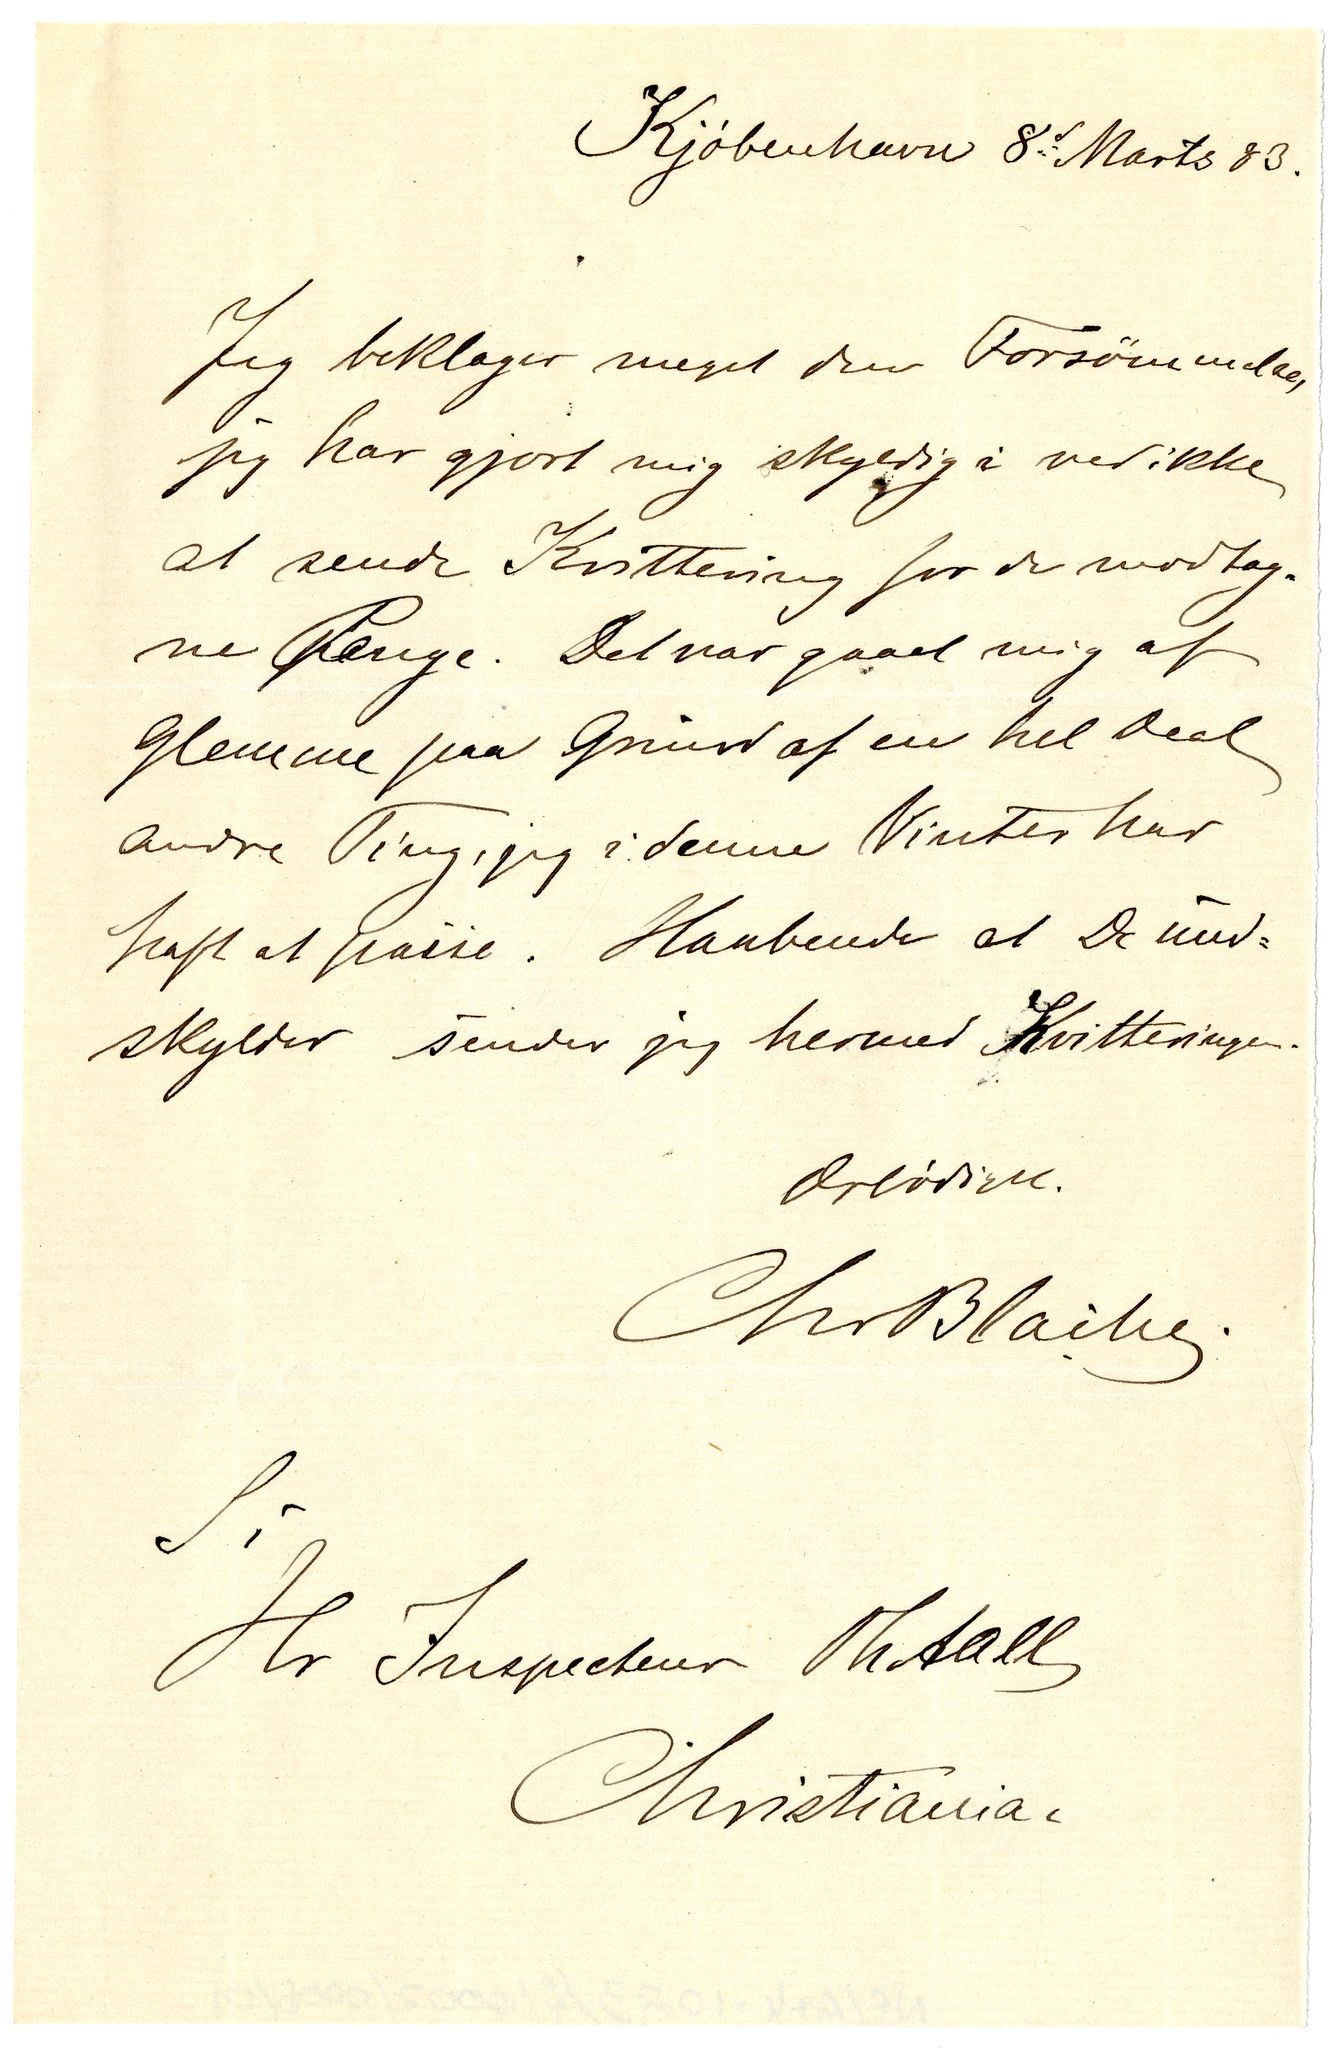 Kjöbenhavn 8d Marts 83.
Jeg beklager meget den Forsömmelse,
jeg har gjort mig skyldig i ved ikke
at sende Kvittering for de modtag-
ne Penge. Det var gaaet mig af
Glemme paa Grund af en hel Deel
andre Ting, jeg i denne Vinter har
haft at passe. Haabende at De und-
skylder sender jeg hermed Kvitteringen.
Ærbödigst.
Chr Blache.
Hr Inspecteur Th. Aall
Christiania.